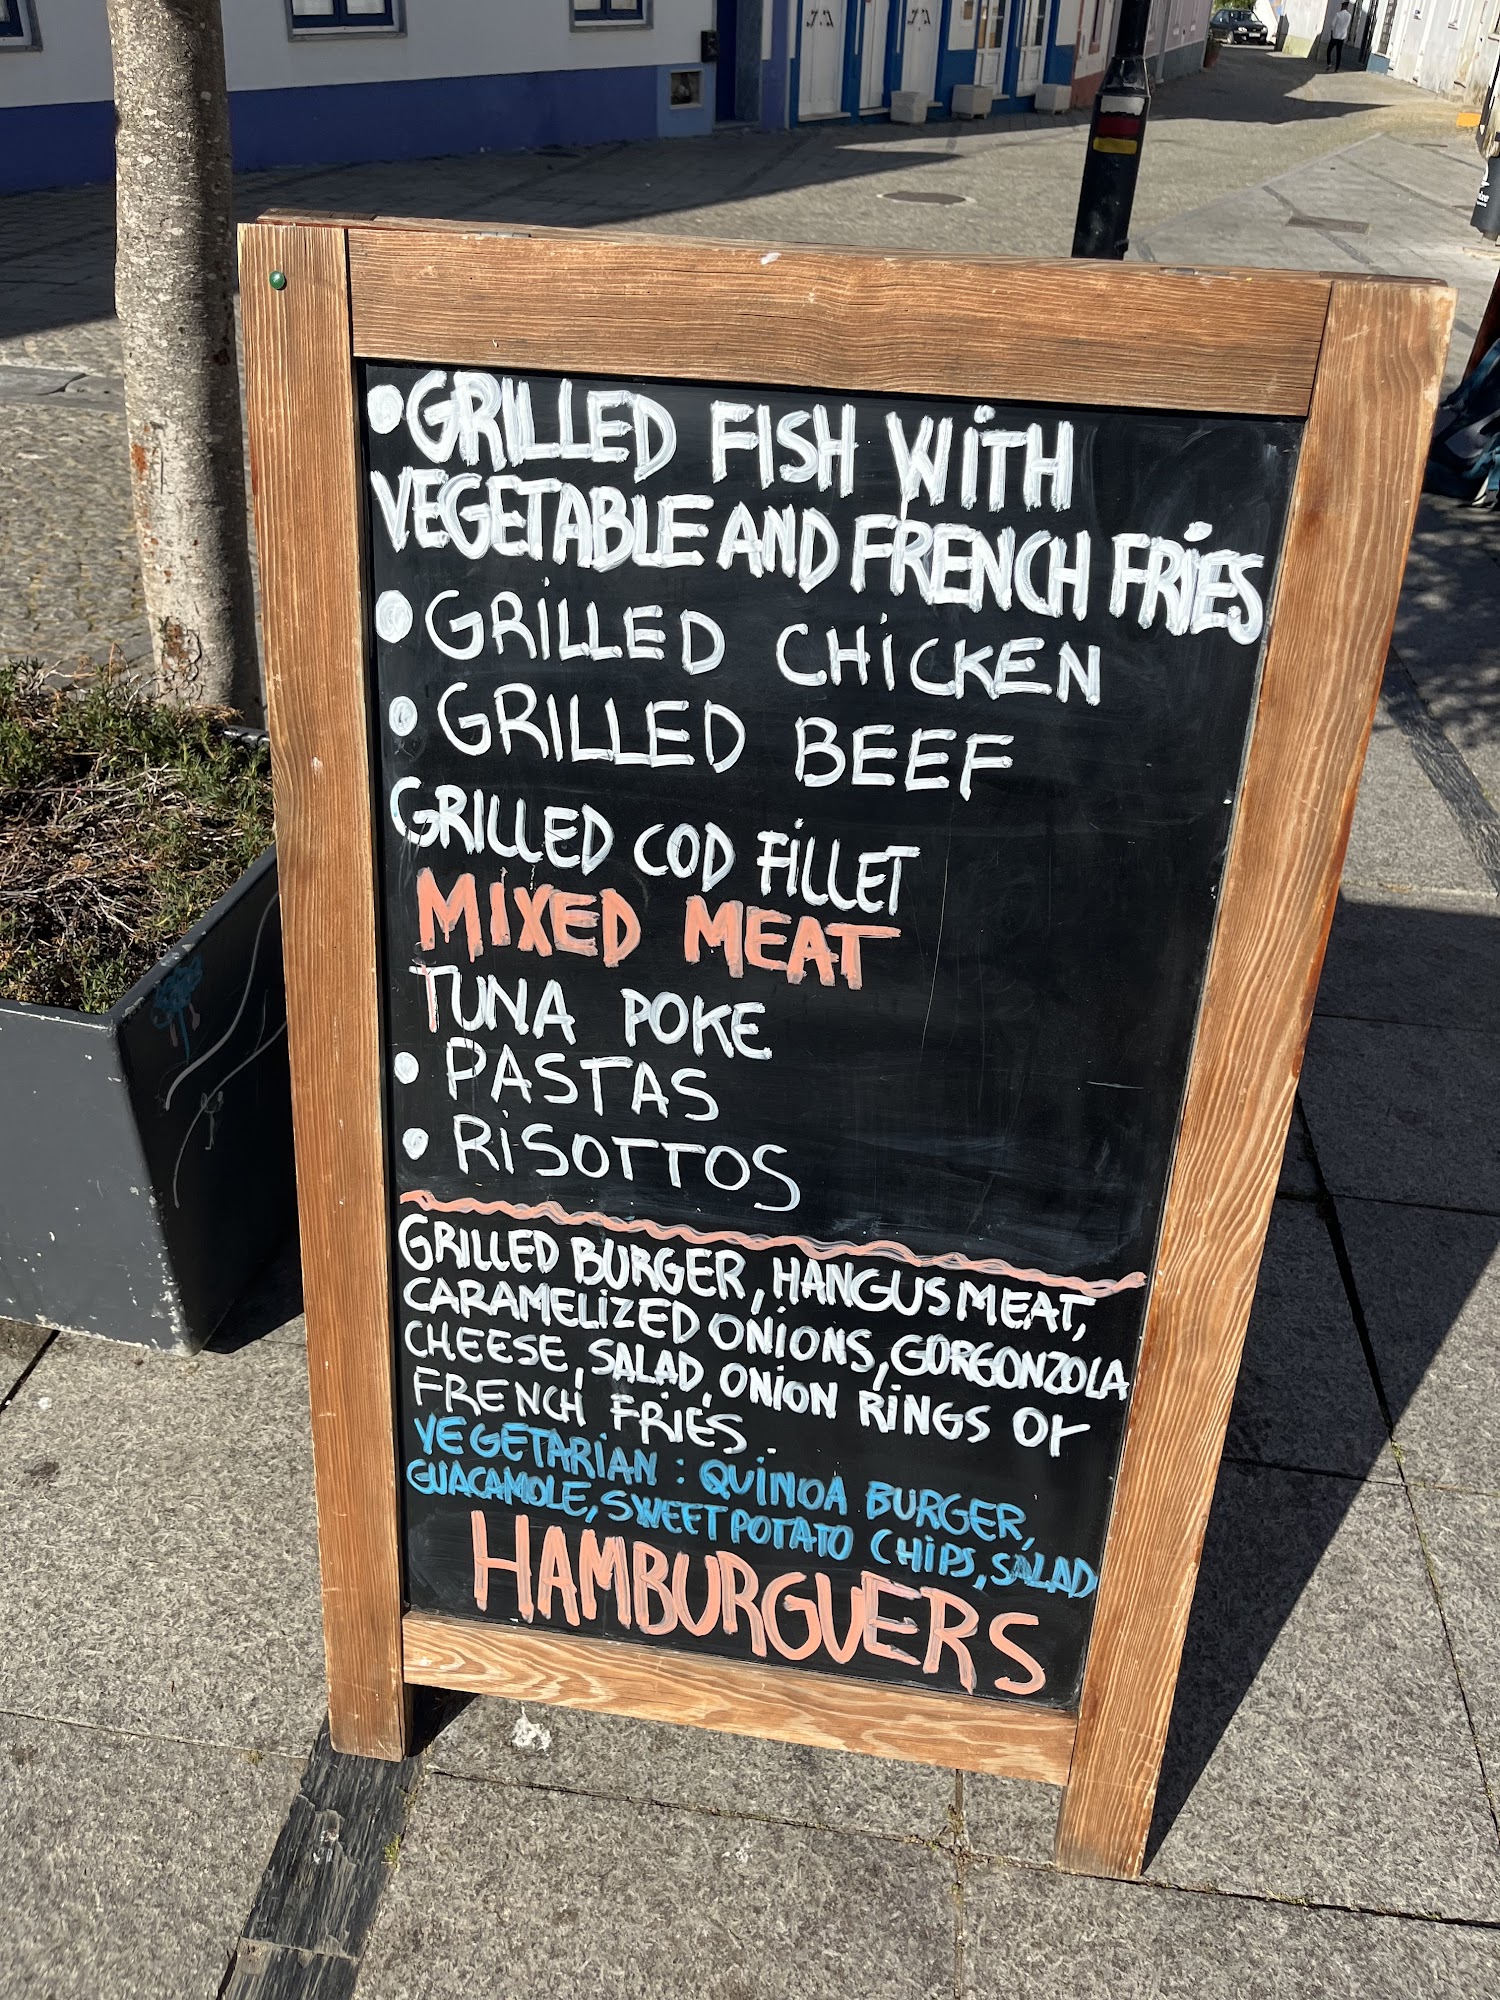 •GRiLLED FiSH WiTH
VEGETABLE AND FRENCH FRiES
•GRiLLED CHiCKEN
•GRiLLED BEEF
GRiLLED COD FiLLET
MiXED MEAT
TUNA POKE
• PASTAS
• RiSOTTOS
GRiLLED BURGER, HANGUS MEAT,
CARAMELiZED ONiONS, GORGONZOLA
CHEESE, SALAD, ONiON RiNGS Or
FRENCH FRiES.
VEGETARiAN : QUiNOA BURGER,
GUACAMOLE, SWEET POTATO CHiPS, SALAD
HAMBURGUERS